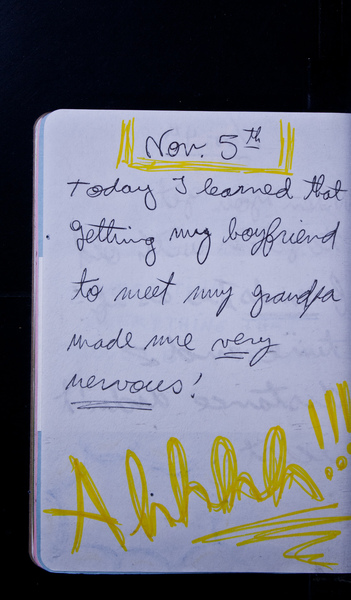 Nov. 5th
Today I learned that
getting my boyfriend
to meet my grandpa
made me very
nervous!
Ahhhh!!!